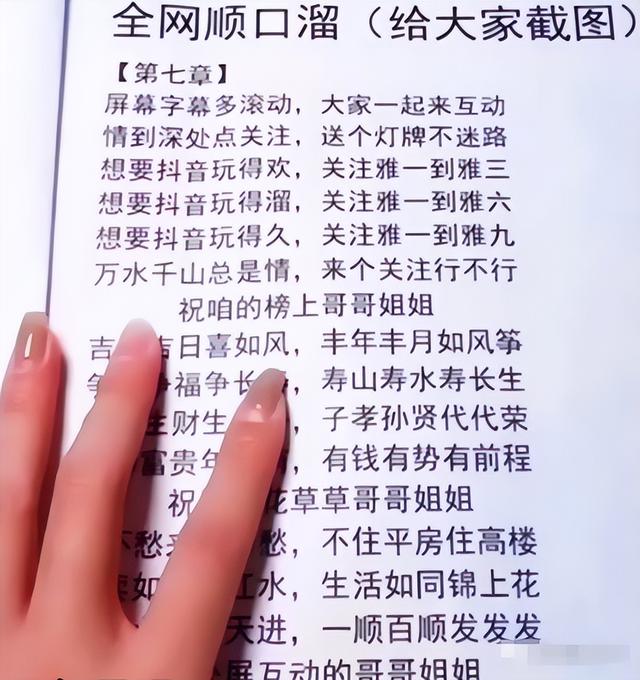 全网顺口溜（给大家截图）
【第七章】
屏幕字幕多滚动，大家一起来互动
情到深处点关注，送个灯牌不迷路
想要抖音玩得欢，关注雅一到雅三
想要抖音玩得溜，关注雅一到雅六
想要抖音玩得久，关注雅一到雅九
万水千山总是情，来个关注行不行
祝咱的榜上哥哥姐姐
吉 吉日喜如风，丰年丰月如风筝
福争长，寿山寿水寿长生
生财生，子孝孙贤代代荣
富贵年，有钱有势有前程
祝 花草草哥哥姐姐
不愁 愁，不住平房住高楼
如 江水，生活如同锦上花
天进，一顺百顺发发发
屏互动的哥哥姐姐